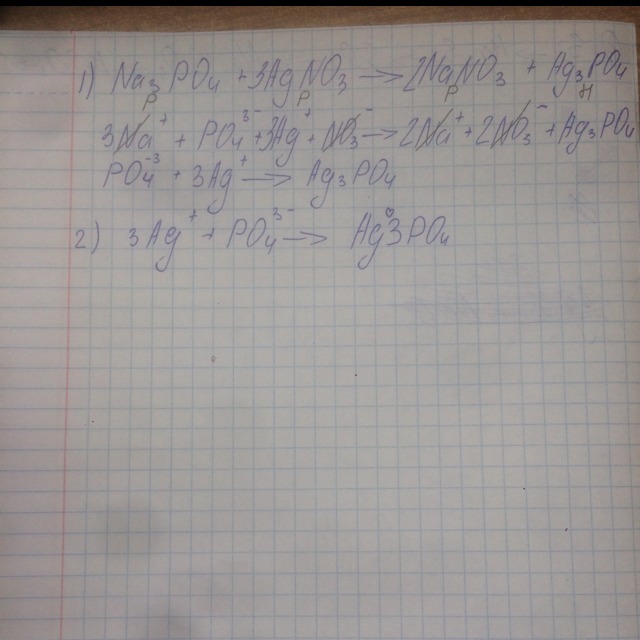 1) Na₃PO₄ + 3AgNO₃ → 2NaNO₃ + Ag₃PO₄
Р Р Р Н
3Na⁺ + PO₄³⁻ + 3Ag⁺ + NO₃⁻ → 2Na⁺ + 2NO₃⁻ + Ag₃PO₄
PO₄⁻³ + 3Ag⁺ → Ag₃PO₄
2) 3Ag⁺ + PO₄³⁻ → Ag3PO₄